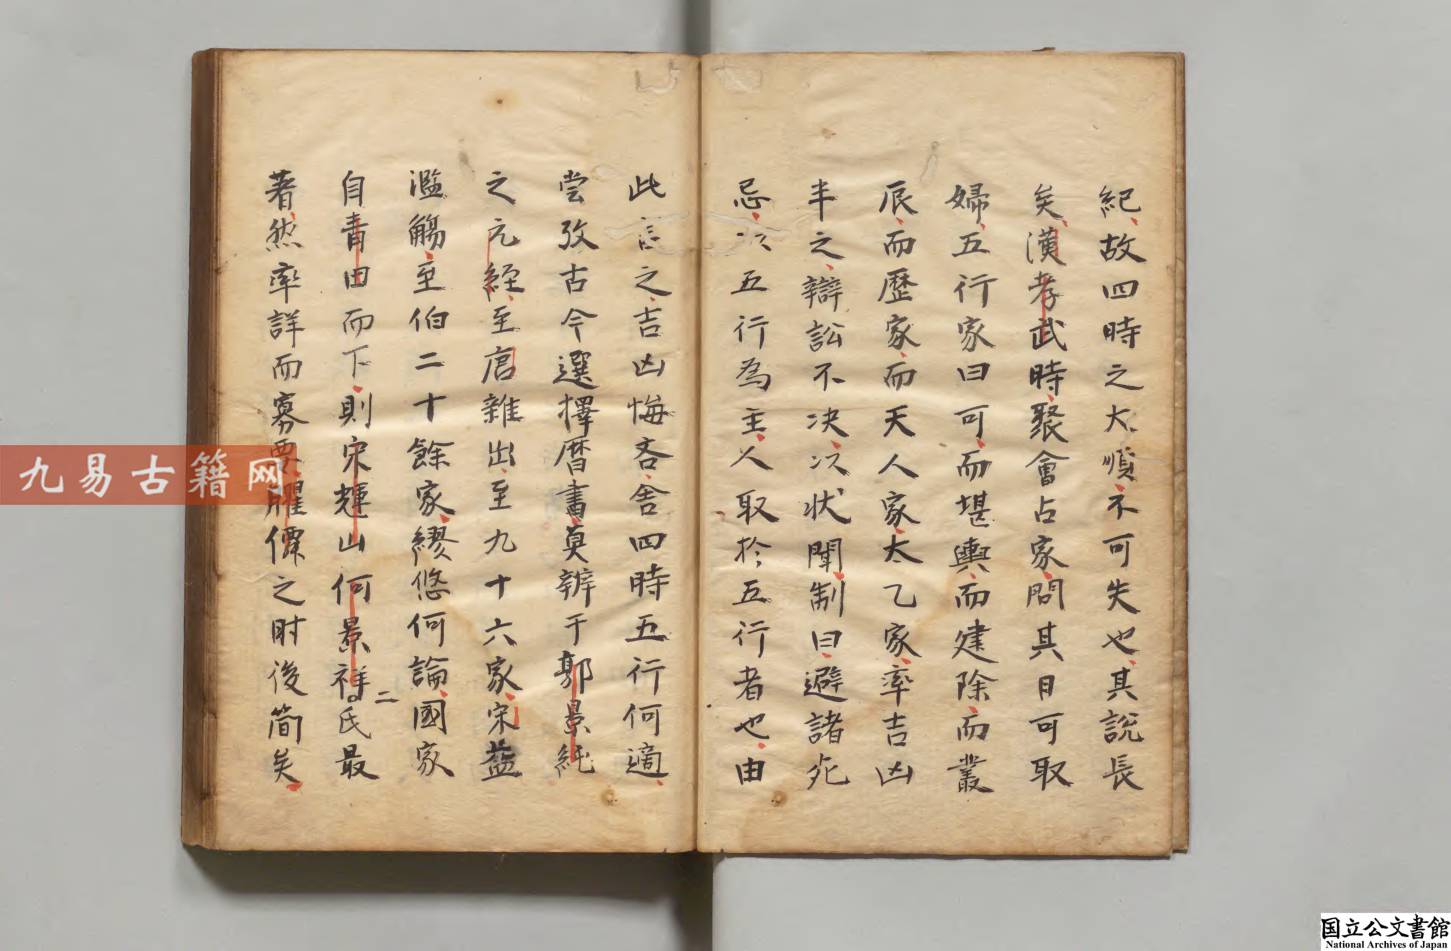 紀故四時之大順不可失也其說長
矣漢孝武時聚會占家問其日可取
婦五行家曰可而堪輿而建除而叢
辰而歷家而天人家太乙家率吉凶
半之辯訟不决以状聞制曰避諸死
忌以五行為主人取於五行者也由
此言之吉凶悔吝舍四時五行何適
尝攷古今選擇曆書莫辨于郭景純
之元經至唐雜出至九十六家宋益
濫觴至伯二十餘家繆悠何論國家
自青田而下則宋輝山何景祥氏最
二
著然率詳而寡要臞僊之时後简矣
九易古籍网
国立公文書館
National Archives of Japan